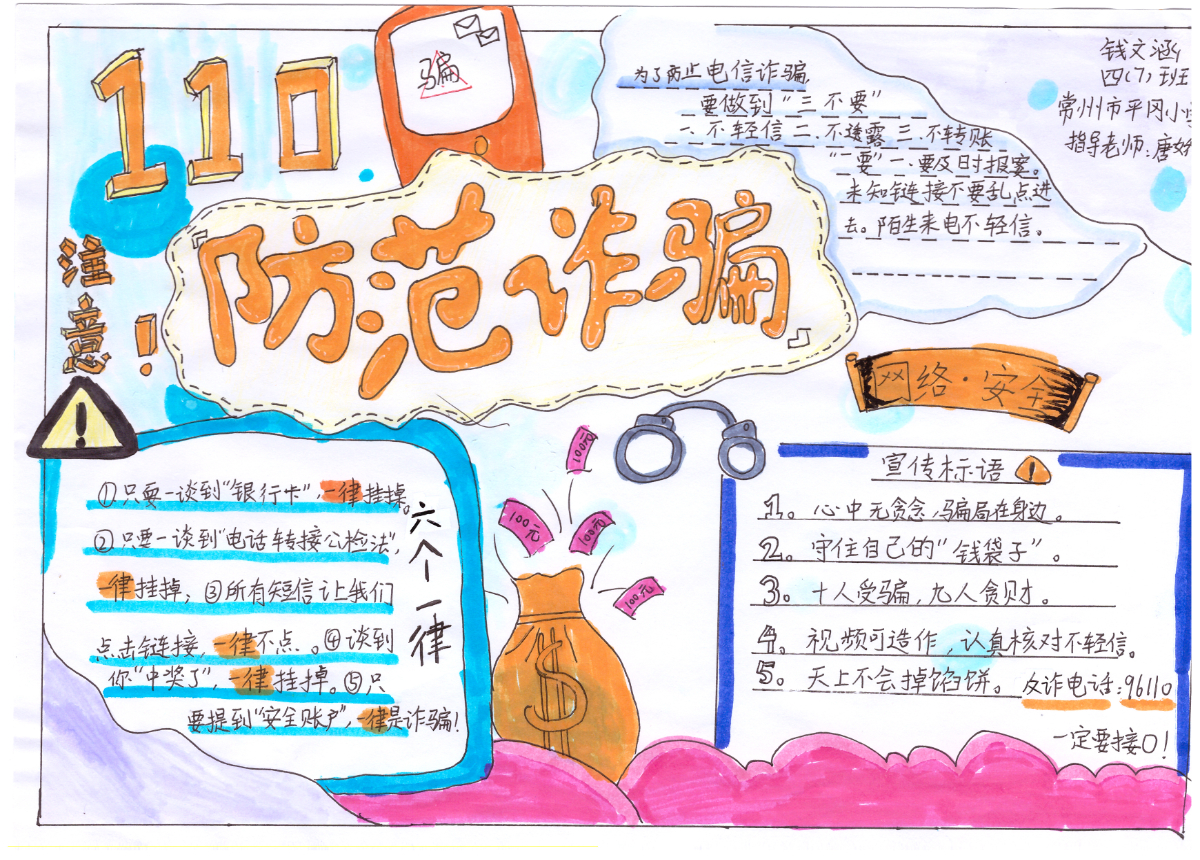 110
骗
为了防止电信诈骗
要做到“三不要”
一.不轻信二.不透露三.不转账
“一要”一.要及时报案。
未知链接不要乱点进
去。陌生来电不轻信。
钱文涵
四(7)班
常州市平冈小学
指导老师:唐
注意!
『防范诈骗』
网络·安全
①只要一谈到“银行卡”,一律挂掉。
②只要一谈到“电话转接公检法”,
一律挂掉;③所有短信让我们
点击链接,一律不点。④谈到
你“中奖了”,一律挂掉。⑤只
要提到“安全账户”,一律是诈骗!
六个一律
100元
100元
100元
100元
$
宣传标语
1。心中无贪念,骗局在身边。
2。守住自己的“钱袋子”。
3。十人受骗,九人贪财。
4。视频可造作,认真核对不轻信。
5。天上不会掉馅饼。
反诈电话:96110
一定要接O!